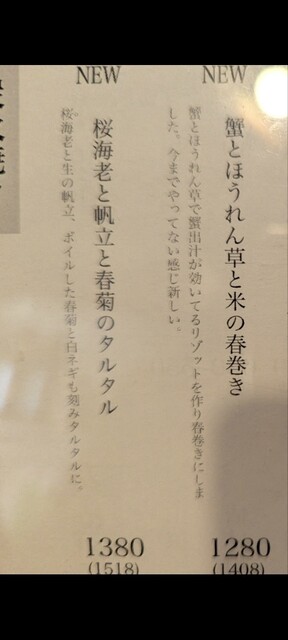 NEW
蟹とほうれん草と米の春巻き
蟹とほうれん草で蟹出汁が効いてるリゾットを作り春巻きにしま
した。今までやってない感じ新しい。
1280
(1408)
NEW
桜海老と帆立と春菊のタルタル
桜海老と生の帆立、ボイルした春菊と白ネギも刻みタルタルに。
1380
(1518)